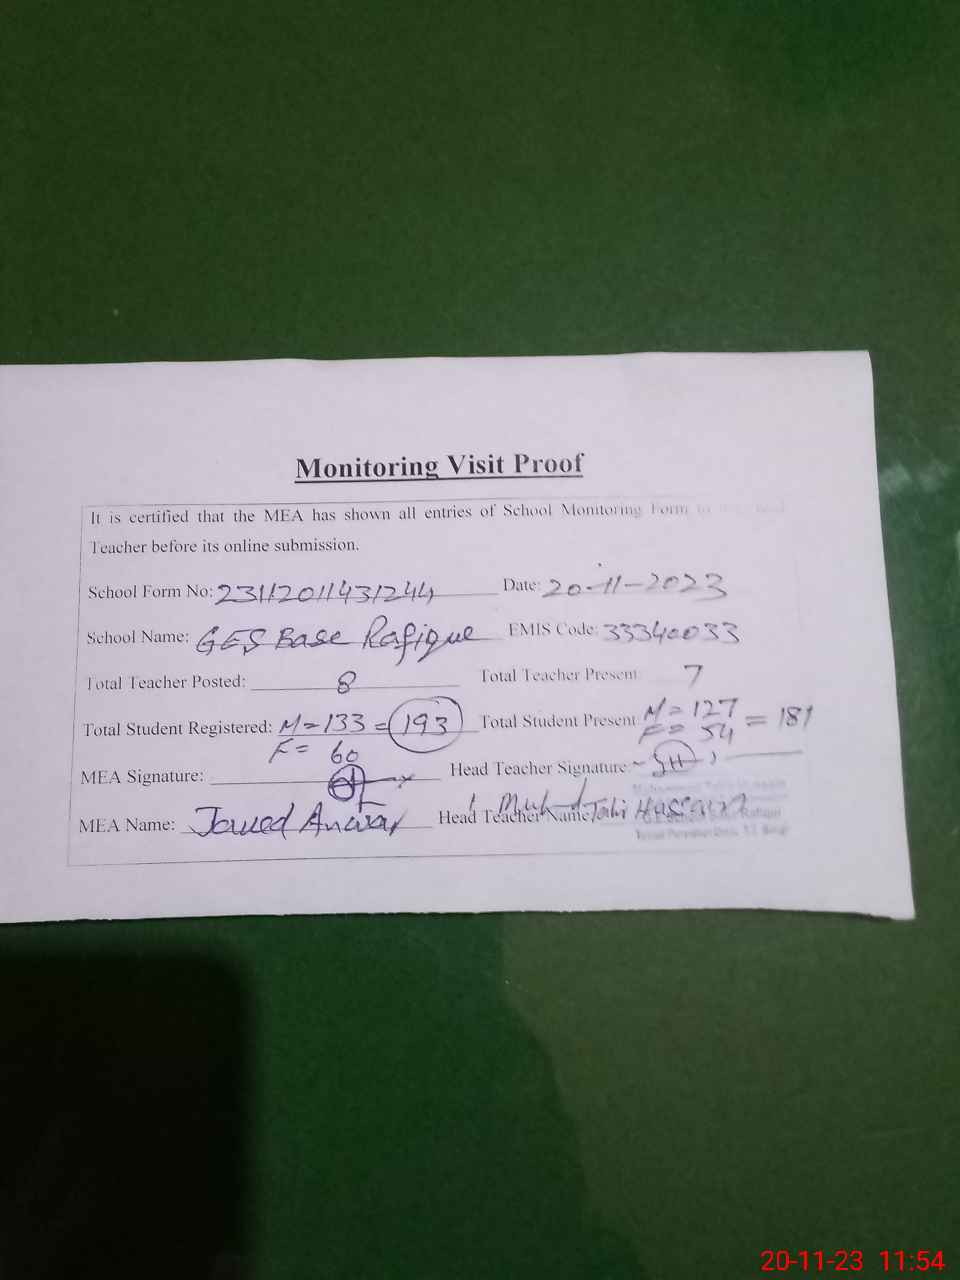 Monitoring Visit Proof
It is certified that the MEA has shown all entries of School Monitoring Form to
Teacher before its online submission.
School Form No: 23112011431244 Date: 20-11-2023
School Name: GES Base Rafique EMIS Code: 33340033
Total Teacher Posted: 8 Total Teacher Present 7
Total Student Registered: M = 133 = 193 Total Student Present M = 127
F = 60 F = 54 = 181
MEA Signature: Head Teacher Signature:
MEA Name: Javed Anwar Head Teacher Name Hassain
20-11-23 11:54